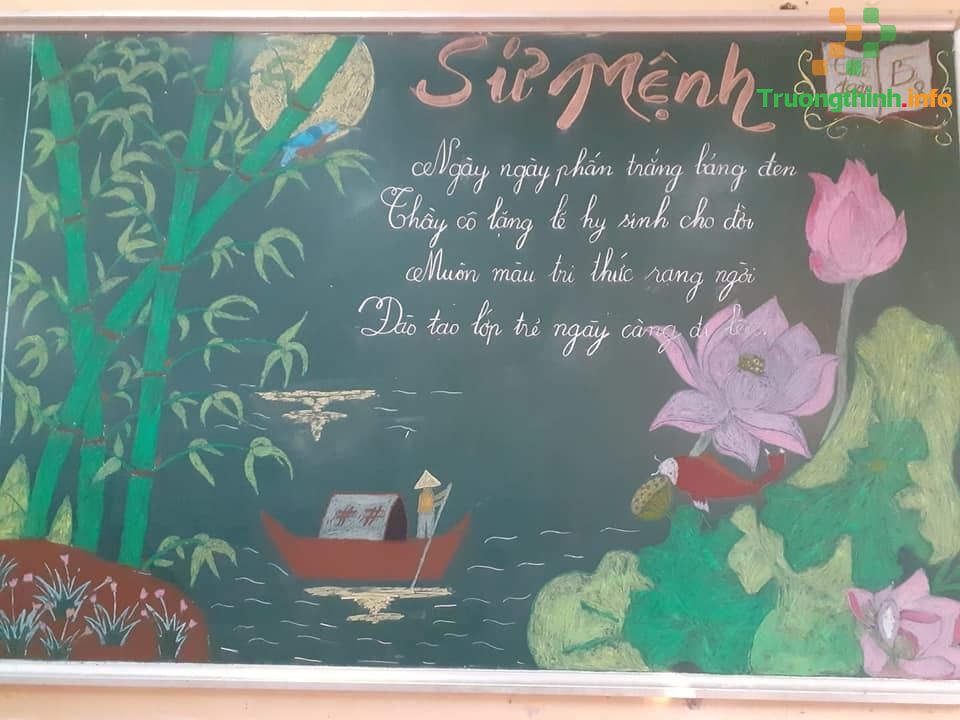 Sứ Mệnh
Ngày ngày phấn trắng bảng đen
Thầy cô lặng lẽ hy sinh cho đời
Muôn màu tri thức rạng ngời
Đào tạo lớp trẻ ngày càng đi
Truongthinh.info
B